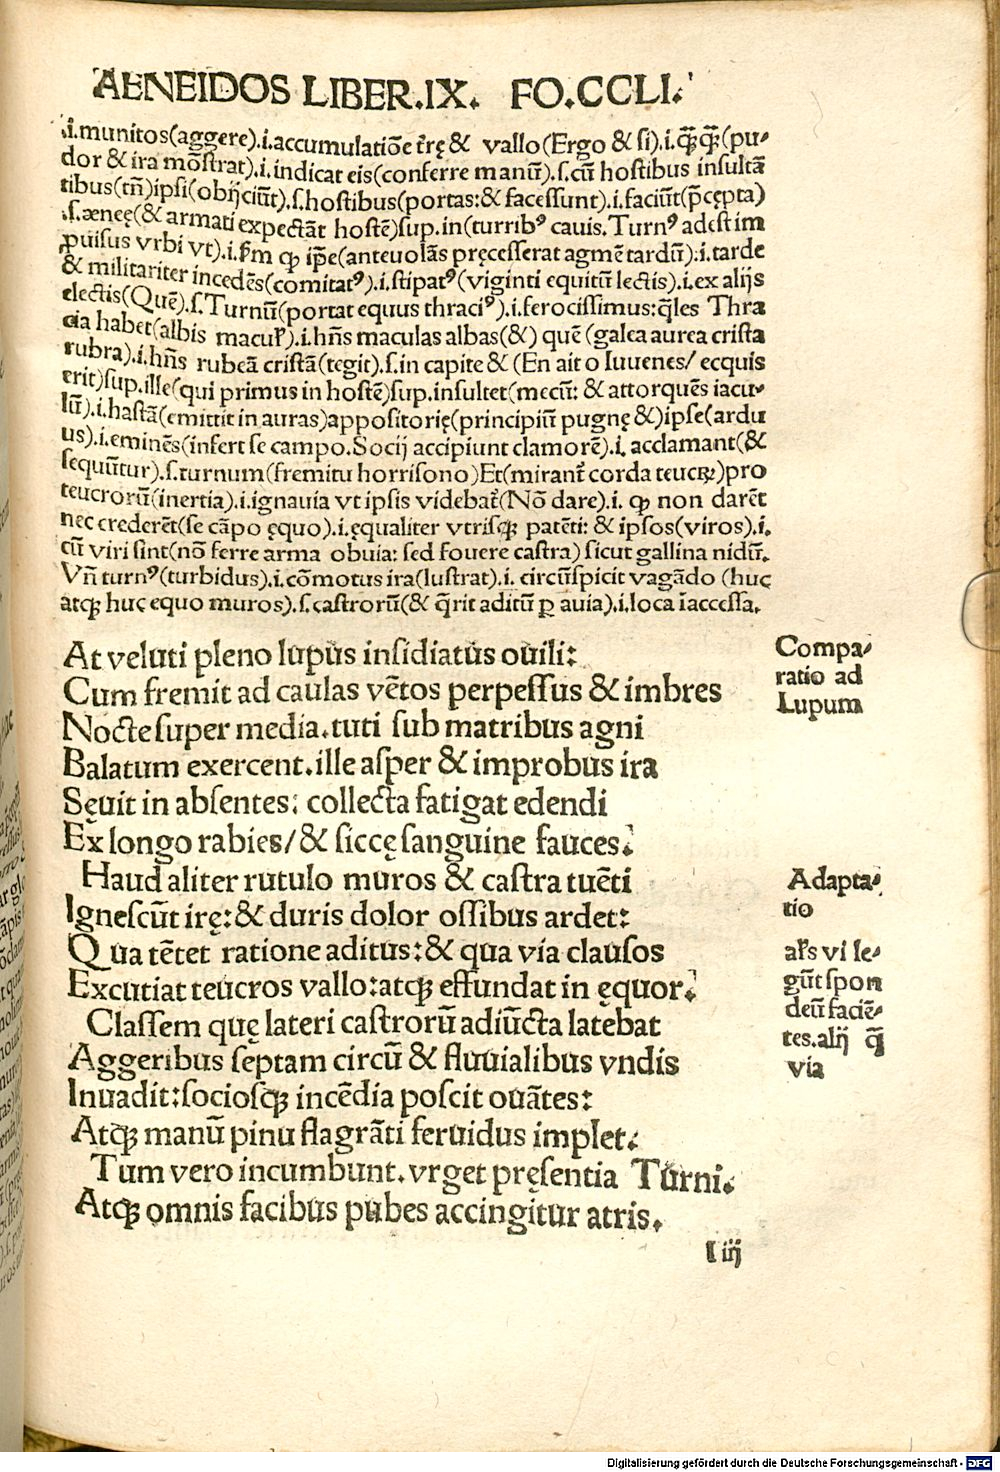 AENEIDOS LIBER.IX. FO.CCLI.
.i.munitos(aggere).i.accumulatiōe t̄rę & vallo(Ergo & si).i.q̄q̄(pu-
dor & ira mōstrat).i.indicat eis(conferre manū).s.cū hostibus insultā
tibus(tn̄)ipsi(obijciūt).s.hostibus(portas:& facessunt).i.faciūt(p̄cępta)
.s.æneę(& armati expectāt hostē)sup.in(turribꝰ cauis.Turnꝰ adest im
ꝓuisus vrbi vt).i.
& militariter incedēs(comitatꝰ).i.stipatꝰ(viginti equitū lectis).i.ex alijs
electis(Quē).s.Turnū(portat equus thraciꝰ).i.ferocissimus:q̄les Thra
cia habet(albis
rubra).i.hn̄s rubeā cristā(tegit).s.in capite & (En ait o Iuuenes/ ecquis
erit)sup.ille(qui primus in hostē)sup.insultet(mecū: & attorquēs iacu-
lū).i.hastā(emittit in auras)appositorię(principiū pugnę &)ipse(ardu
us).i.eminēs(infert se campo.Socij accipiunt clamorē).i. acclamant(&
sequūtur).s.turnum(fremitu horrisono)Et(mirant̄ corda teucꝝ)pro
teucrorū(inertia).i.ignauia vt ipsis videbat̄(Nō dare).i. ꝙ non darēt
nec crederēt(se cāpo ęquo).i.ęqualiter vtrisqꝫ patēti: & ipsos(viros).i.
cū viri sint(nō ferre arma obuia: sed fouere castra) sicut gallina nidū.
Vn̄ turnꝰ(turbidus).i.cōmotus ira(lustrat).i. circūspicit vagādo (huc
atqꝫ huc equo muros).s.castrorū(& q̄rit aditū ꝑ auia).i.loca īaccessa.
At veluti pleno lupus insidiatus ouili:
Cum fremit ad caulas vētos perpessus & imbres
Nocte super media.tuti sub matribus agni
Balatum exercent.ille asper & improbus ira
Sęuit in absentes: collecta fatigat edendi
Ex longo rabies/& siccę sanguine fauces.
Haud aliter rutulo muros & castra tuēti
Ignescūt irę:& duris dolor ossibus ardet:
Qua tētet ratione aditus:& qua via clausos
Excutiat teucros vallo:atqꝫ effundat in ęquor.
Classem quę lateri castrorū adiūcta latebat
Aggeribus septam circū & fluuialibus vndis
Inuadit:sociosqꝫ incēdia poscit ouātes:
Atqꝫ manū pinu flagrāti feruidus implet.
Tum vero incumbunt.vrget pręsentia Turni.
Atqꝫ omnis facibus pubes accingitur atris.
l iij
Compa-
ratio ad
Lupum
Adapta-
tio
vi le-
gūt spon
deū faciē-
tes.alij q̄
via
Digitalisierung gefördert durch die Deutsche Forschungsgemeinschaft - DFG